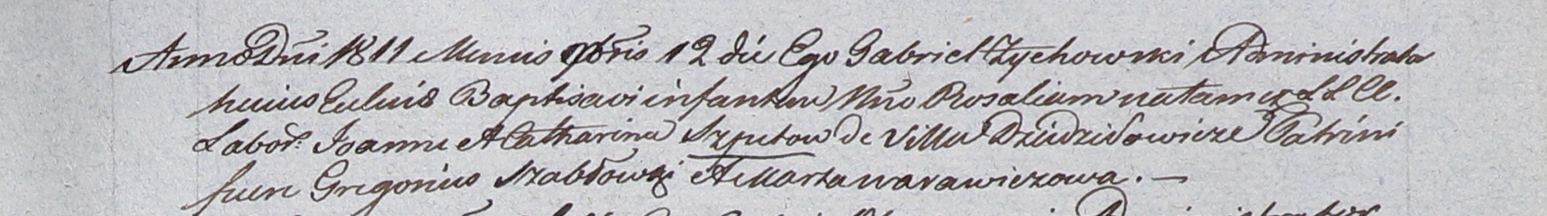 Anno Dni 1811 Mensis 9bris 12 die Ego Gabriel Zychowski Administrator
huius Eccliae Baptisavi infantem Nne Rosaliam natam ex LL CC.
Labor. Joanne et Catharina Szpetow de Villa Dziedzilowicze Patrini
fuere Gregorius Szabłowski et Marta